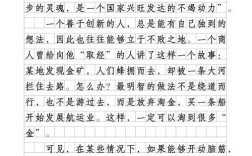 步的灵魂，是一个国家兴旺发达的不竭动力”
一个善于创新的人，总是能有自己独到的
想法，因此也往往能够立于不败之地。一个商
人曾给向他“取经”的人讲了这样一个故事：
某地发现金矿，人们蜂拥而去，却被一条大河
拦住去路。怎么办？最明智的做法不是绕道而
行，也不是游过去，而是放弃淘金，买一条船
开始发展航运业。这样，一定可以淘到很多“
金”。
可见，在某些情况下，如果能够开动脑筋，